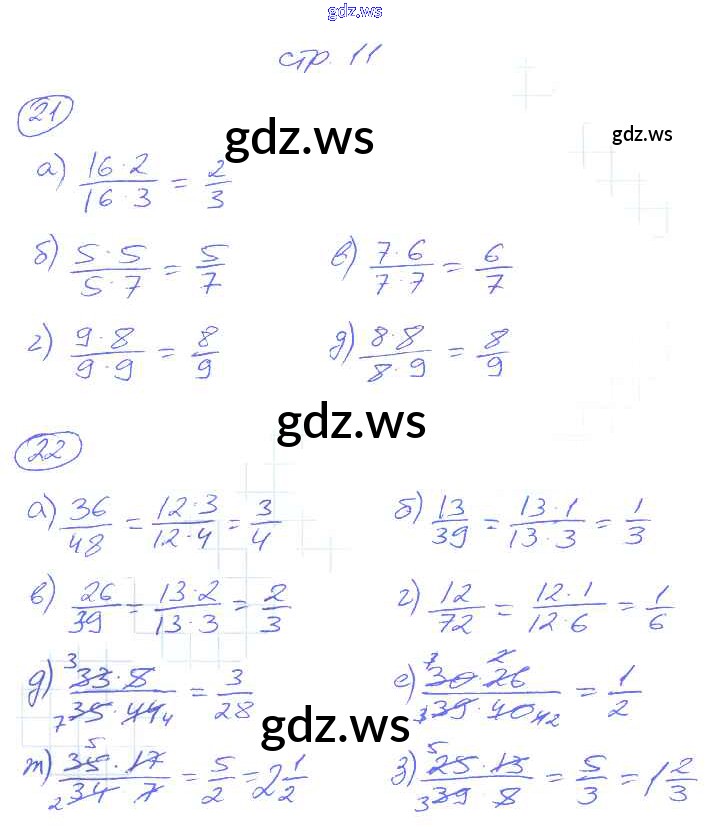 gdz.ws
стр. 11
21
gdz.ws
gdz.ws
а) 16·2/16·3 = 2/3
б) 5·5/5·7 = 5/7
в) 7·6/7·7 = 6/7
г) 9·8/9·9 = 8/9
д) 8·8/8·9 = 8/9
gdz.ws
22
а) 36/48 = 12·3/12·4 = 3/4
б) 13/39 = 13·1/13·3 = 1/3
в) 26/39 = 13·2/13·3 = 2/3
г) 12/72 = 12·1/12·6 = 1/6
д) 33·8/35·44 = 3/28
е) 30·26/39·40 = 1/2
gdz.ws
ж) 35·17/34·7 = 5/2 = 2 1/2
з) 25·13/39·8 = 5/3 = 1 2/3